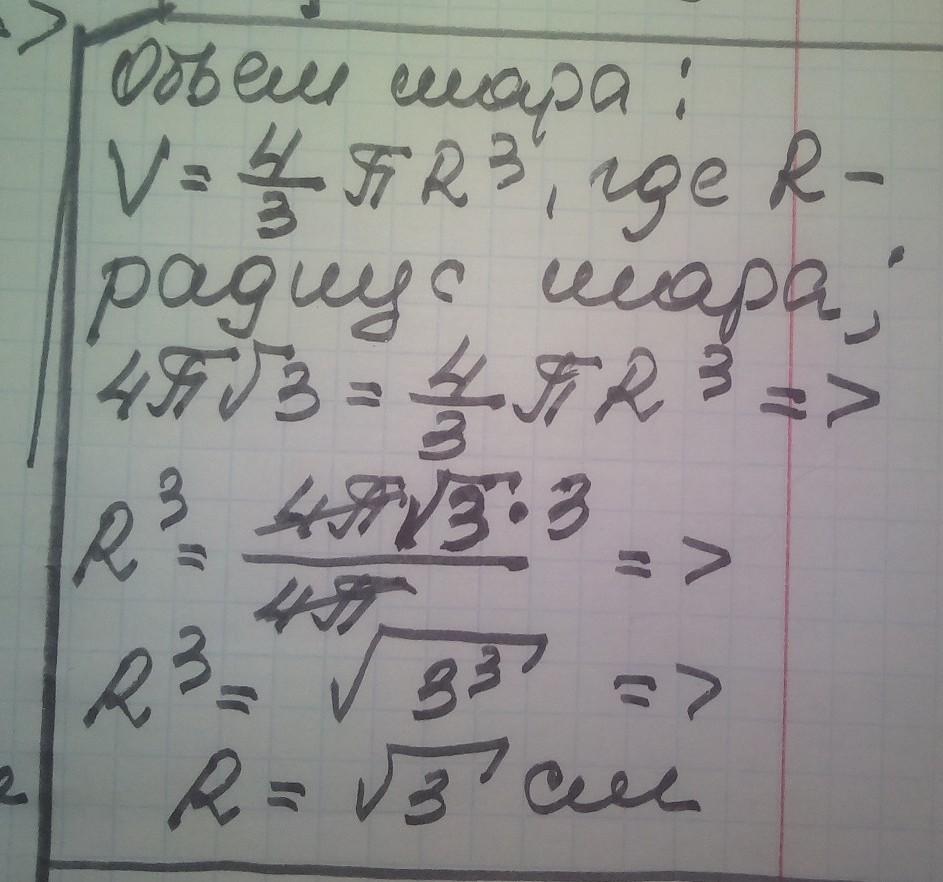 Объем шара:
V = 4/3 πR³, где R –
радиус шара;
4π√3 = 4/3 πR³ =>
R³ = 4π√3·3 / 4π =>
R³ = √3³ =>
R = √3 см